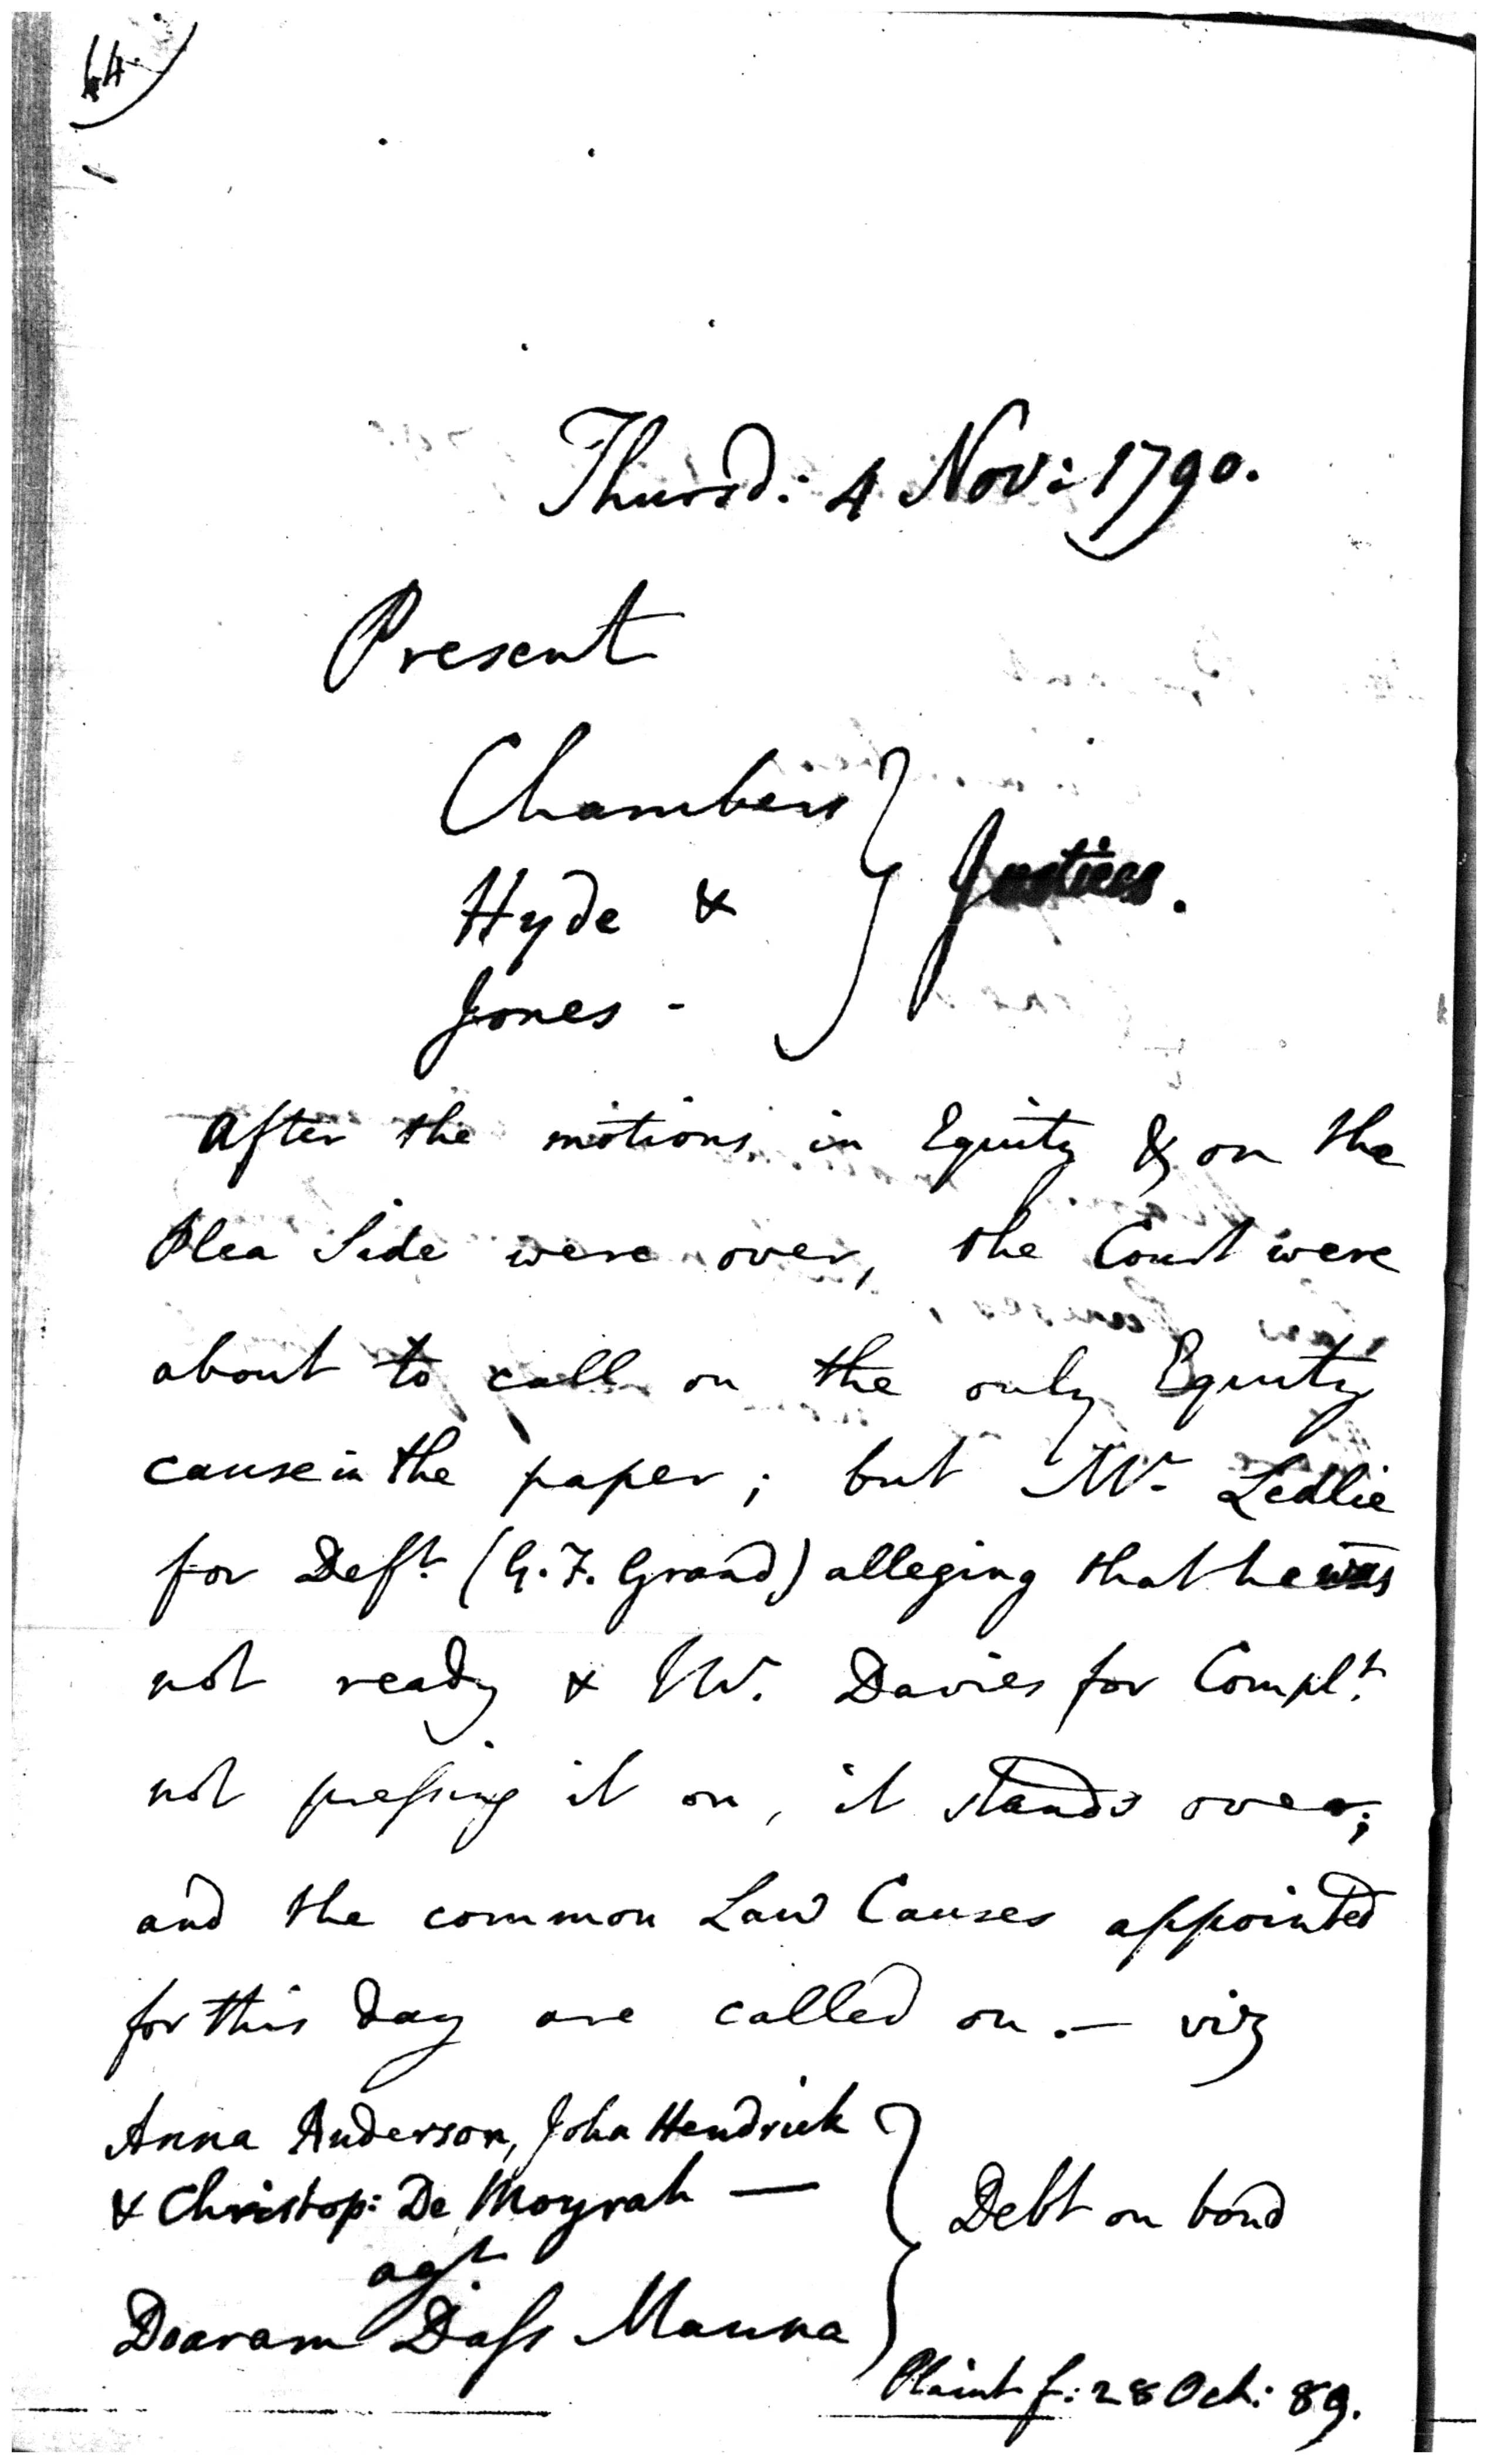 64
Thursd: 4 Nov: 1790.
Present
Chambers
Hyde & Justices.
Jones -
After the motions in Equity & on the
Plea Side were over, the Court were
about to call on the only Equity
cause in the paper; but Mr. Ledlie
for Deft. (G. F. Grand) alleging that he was
not ready & Mr. Davies for Complt.
not pressing it on, it stands over;
and the common Law Causes appointed
for this day are called on. — viz
Anna Anderson, John Hendrick
& Christop: De Moyrah —
agt. Debt on bond
Doaram Dass Manna
Plaint f: 28 Oct: 89.